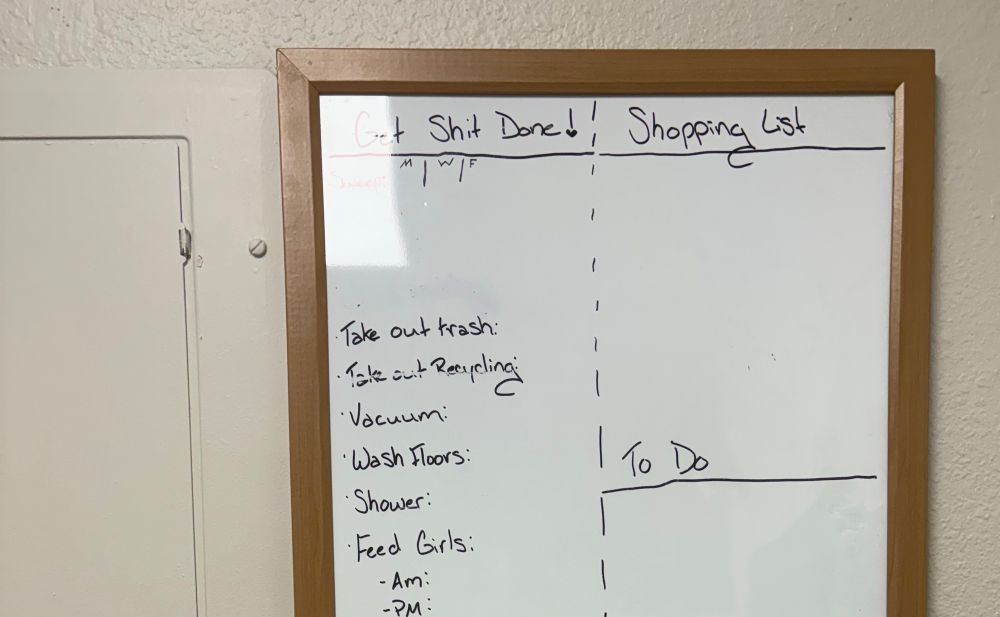 Get Shit Done!
M | W | F
Sweep:
· Take out trash:
· Take out Recycling:
· Vacuum:
· Wash Floors:
· Shower:
· Feed Girls:
- Am:
- PM:
Shopping List
To Do